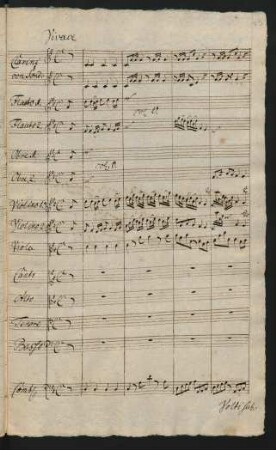 Vivace
Clarini
Flauto 1.
Flauto 2.
col V.
Oboe 1.
col V.
Oboe 2.
Violino 1.
Violino 2.
Viola
Canto
Alto
Tenore
Basso
Volti sub.